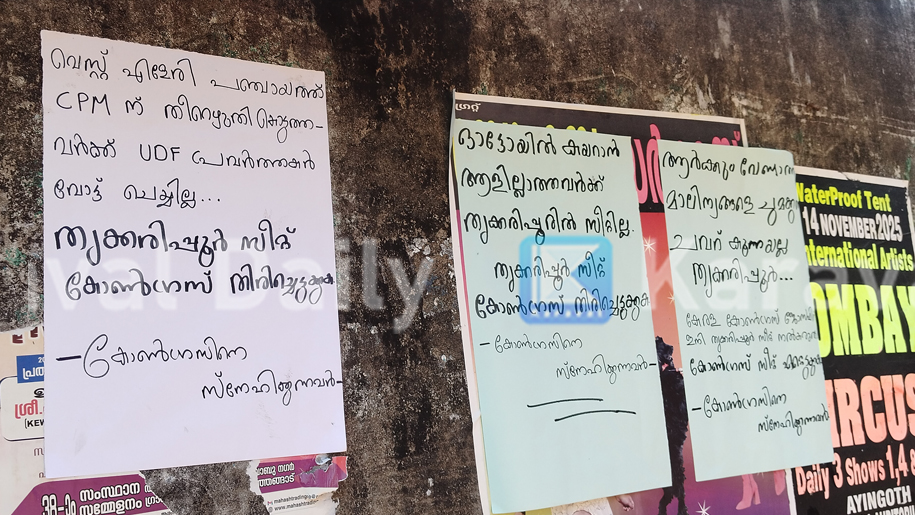 വെസ്റ്റ് എളേരി പഞ്ചായത്ത്
CPM ന് തീറെഴുതി കൊടുത്ത-
വർക്ക് UDF പ്രവർത്തകർ
വോട്ട് ചെയ്യില്ല...
തൃക്കരിപ്പൂർ സീറ്റ്
കോൺഗ്രസ് തിരിച്ചെടുക്കുക
-കോൺഗ്രസിനെ
സ്നേഹിക്കുന്നവർ-
ഗ്രേറ്റ്
ഓട്ടോയിൽ കയറാൻ
ആളില്ലാത്തവർക്ക്
തൃക്കരിപ്പൂരിൽ സീറ്റില്ല.
തൃക്കരിപ്പൂർ സീറ്റ്
കോൺഗ്രസ് തിരിച്ചെടുക്കുക
-കോൺഗ്രസിനെ
സ്നേഹിക്കുന്നവർ-
ആർക്കും വേണ്ടാത്ത
മാലിന്യങ്ങളെ ചുമക്കുന്ന
ചവറ് കൂനയല്ല
തൃക്കരിപ്പൂർ...
കേരള കോൺഗ്രസ്
ഇനി തൃക്കരിപ്പൂർ സീറ്റ്
കോൺഗ്രസ് സീറ്റ്
-കോൺഗ്രസിനെ
സ്നേഹിക്കുന്നവർ
WaterProof Tent
14 NOVEMBER 2025
International Artists
BOMBAY
CIRCUS
Daily 3 Shows 1,4
AYINGOTH
38-ാം സംസ്ഥാന
സമ്മേളനം
നഗർ
ival Daily
K
Karav